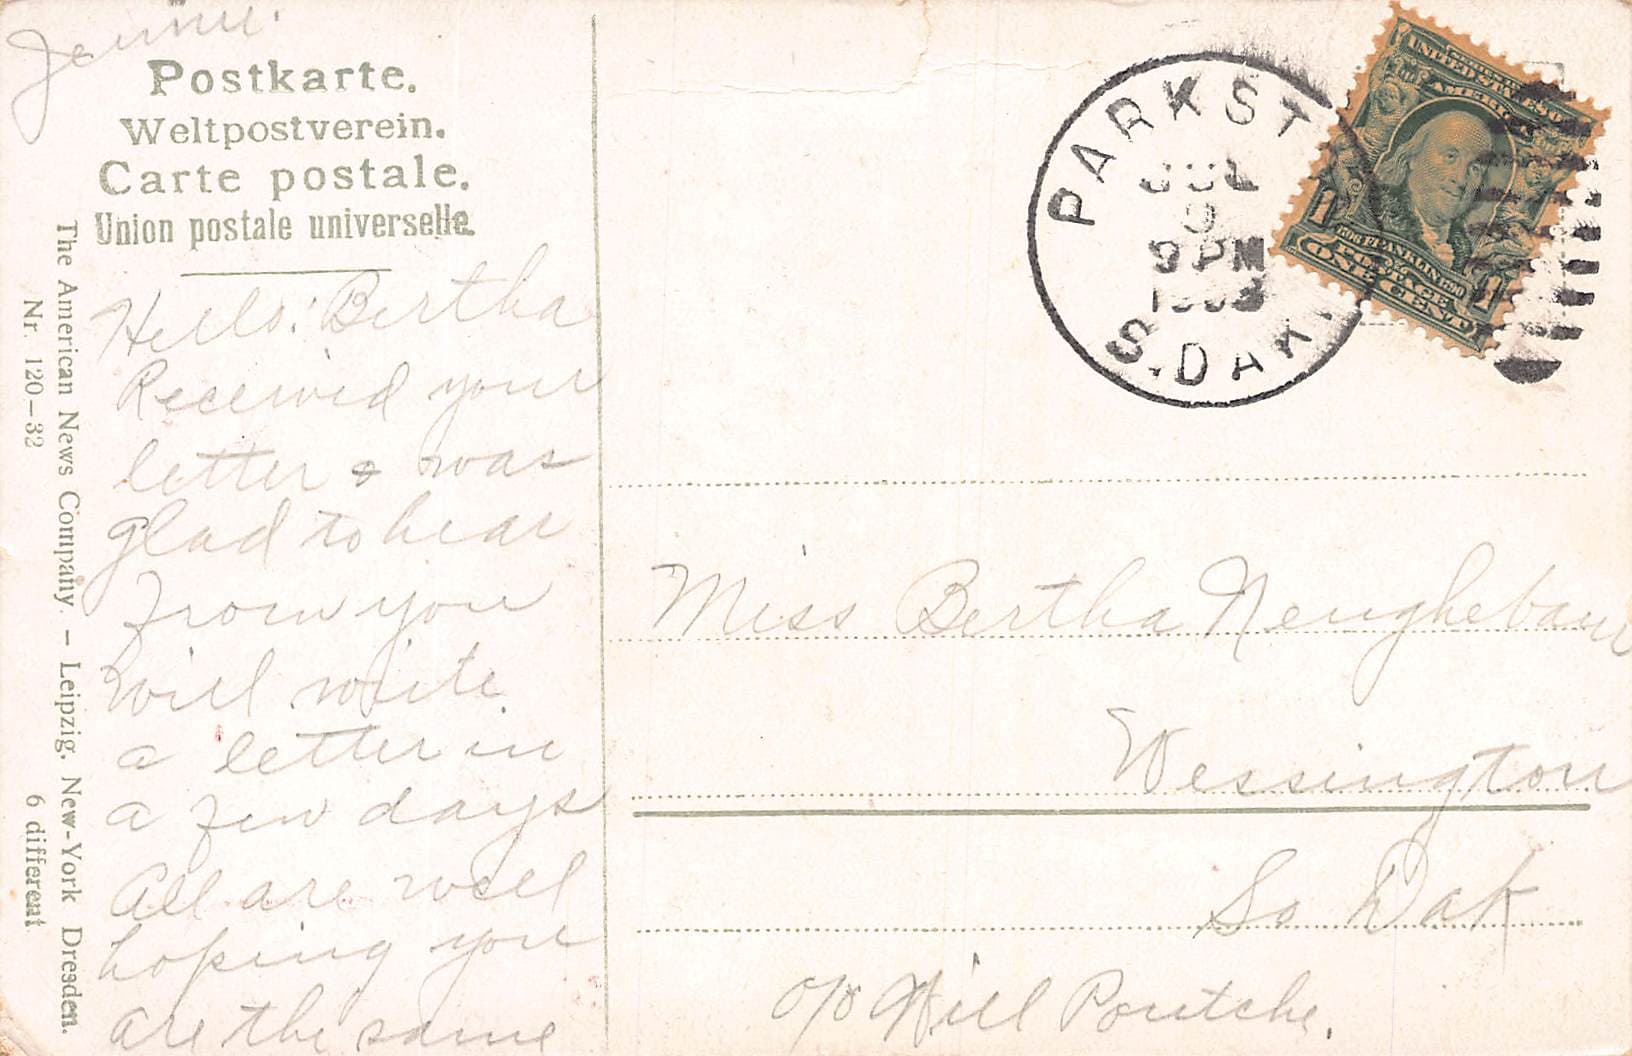 Jennie
Postkarte.
Weltpostverein.
Carte postale.
Union postale universelle.
Hello: Bertha
Received your
letter & was
glad to hear
from you
will write
a letter in
a few days
All are well
hoping you
are the same
The American News Company. – Leipzig. New-York Dresden.
Nr. 120–32 6 different
PARKST
JUL
9
9 PM
S. DAK.
UNITED STATES OF
AMERICA
1706 FRANKLIN 1790
POSTAGE
1 ONE CENT 1
Miss Bertha Neughebaur
Wessington
So Dak
c/o Will Poutche.